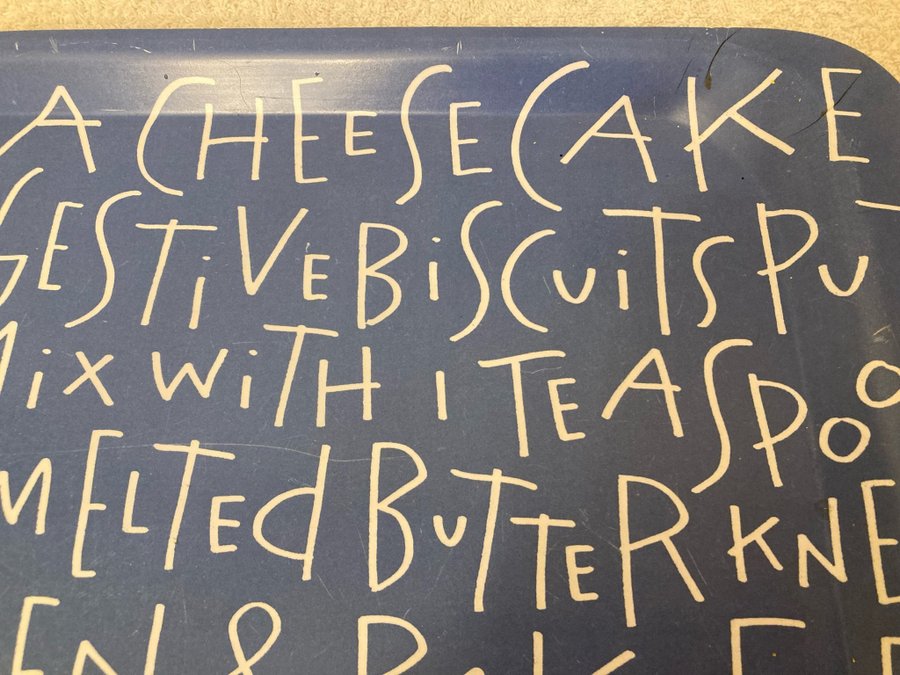 A CHEESECAKE
GESTIVE BISCUITS PUT
MIX WITH 1 TEASPOO
MELTED BUTTER KNE
EN &